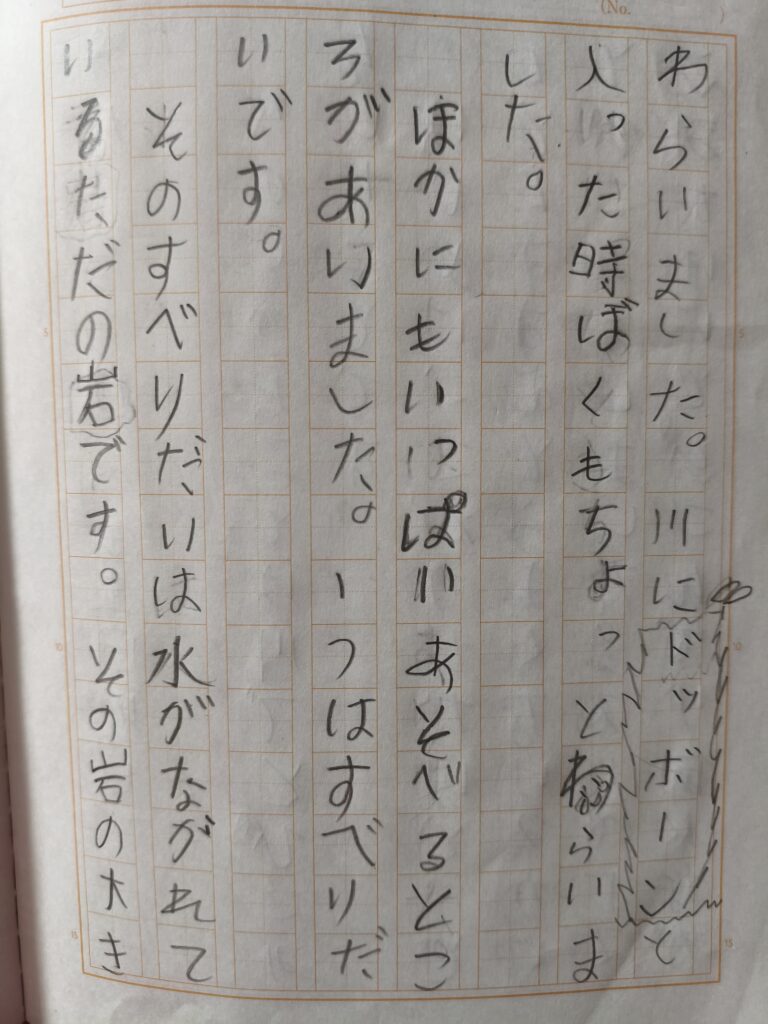 (No. )
わらいました。川にドッボーンと
入った時ぼくもちょっとわらいま
した。
ほかにもいっぱいあそべるとこ
ろがありました。一つはすべりだ
いです。
そのすべりだいは水がながれて
いるただの岩です。その岩の大き
5
10
15
5
10
15